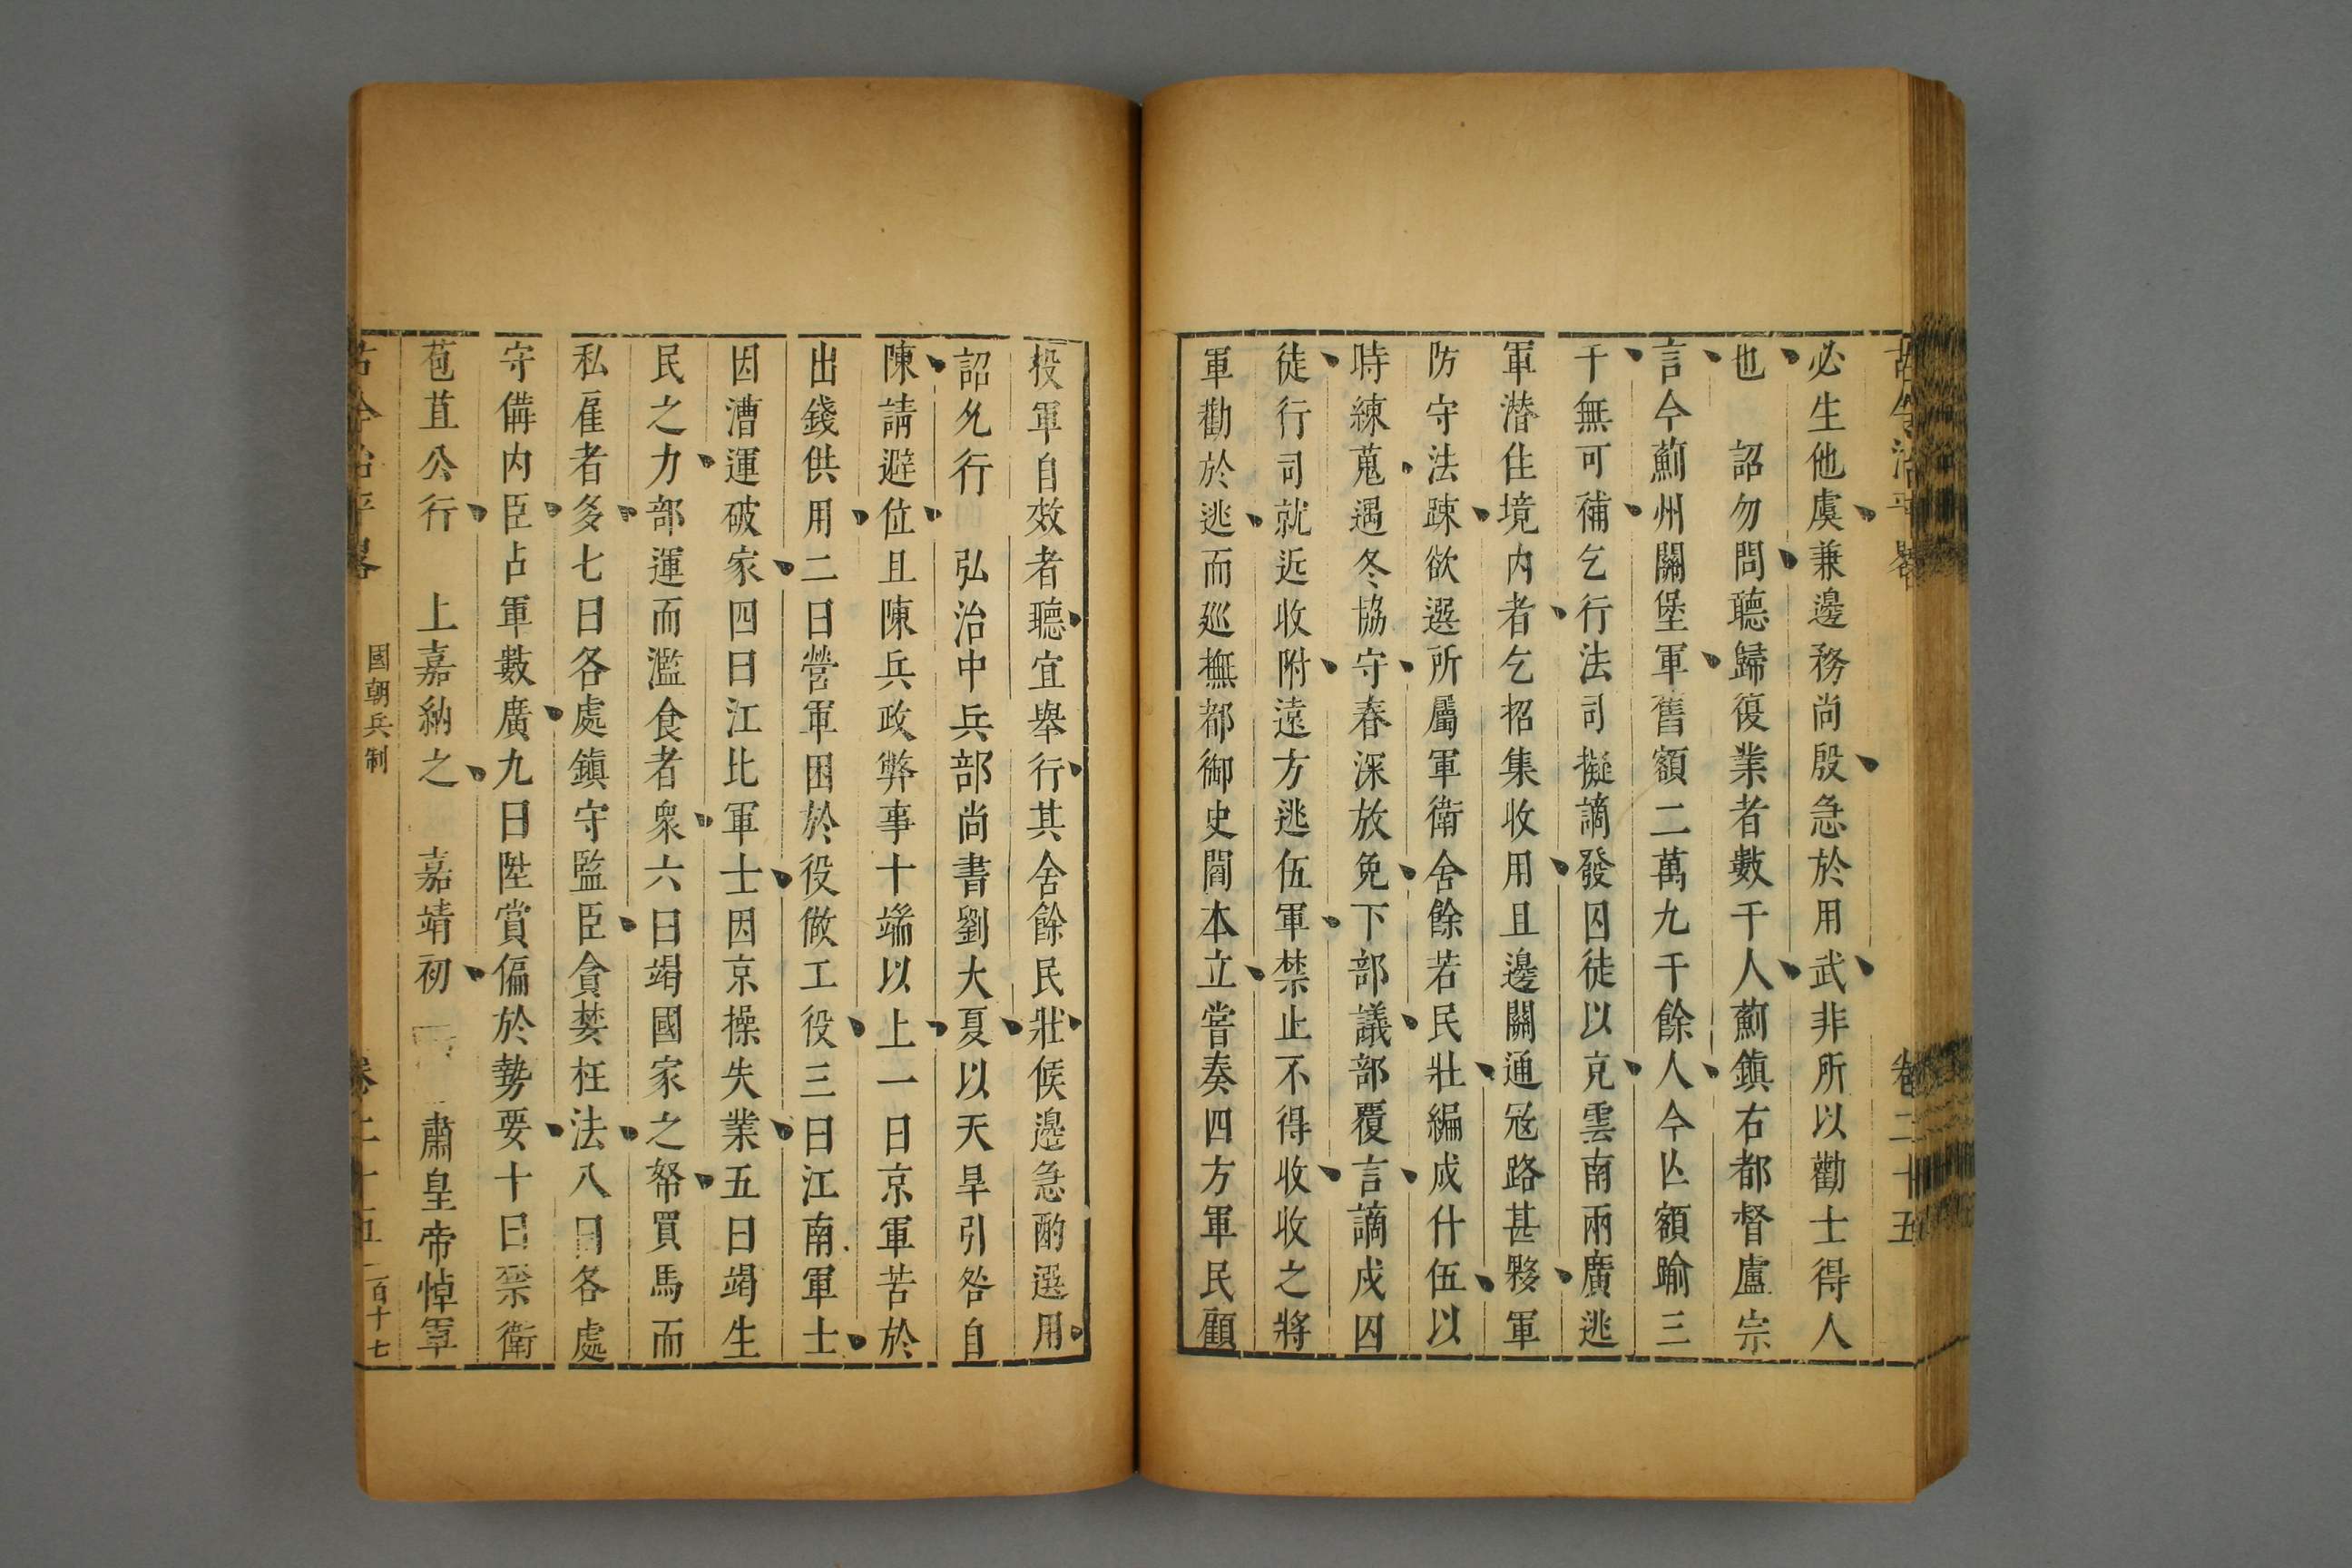 古今治平畧 卷二十五
必生他虞兼邊務尚殷急於用武非所以勸士得人
也 詔勿問聽歸復業者數千人薊鎮右都督盧宗
言今薊州關堡軍舊額二萬九千餘人今亾額踰三
千無可補乞行法司擬謫發囚徒以克雲南兩廣逃
軍潛住境内者乞招集收用且邊關通冦路甚夥軍
防守法踈欲選所屬軍衛舍餘若民壯編成什伍以
時練蒐遇冬協守春深放免下部議部覆言謫戍囚
徒行司就近收附遠方逃伍軍禁止不得收收之將
軍勸於逃而廵撫都御史閻本立嘗奏四方軍民顧
投軍自效者聽宜舉行其舍餘民壯候邊急酌選用
詔允行 弘治中兵部尚書劉大夏以天旱引咎自
陳請避位且陳兵政弊事十端以上一曰京軍苦於
出錢供用二曰營軍困於役做工役三曰江南軍士
因漕運破家四曰江北軍士因京操失業五曰竭生
民之力部運而濫食者衆六曰竭國家之帑買馬而
私雇者多七曰各處鎮守監臣貪婪枉法八曰各處
守備内臣占軍數廣九曰陞賞偏於勢要十曰禁衛
苞苴公行 上嘉納之 嘉靖初 肅皇帝悼軍
古今治平畧 國朝兵制 卷二十五 一百十七